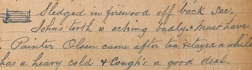 Sledged in firewood off back Sec.
John's tooth is aching badly. Must have
Painter Olsen came after tea & stayed a while
has a heavy cold & cough's a good deal.